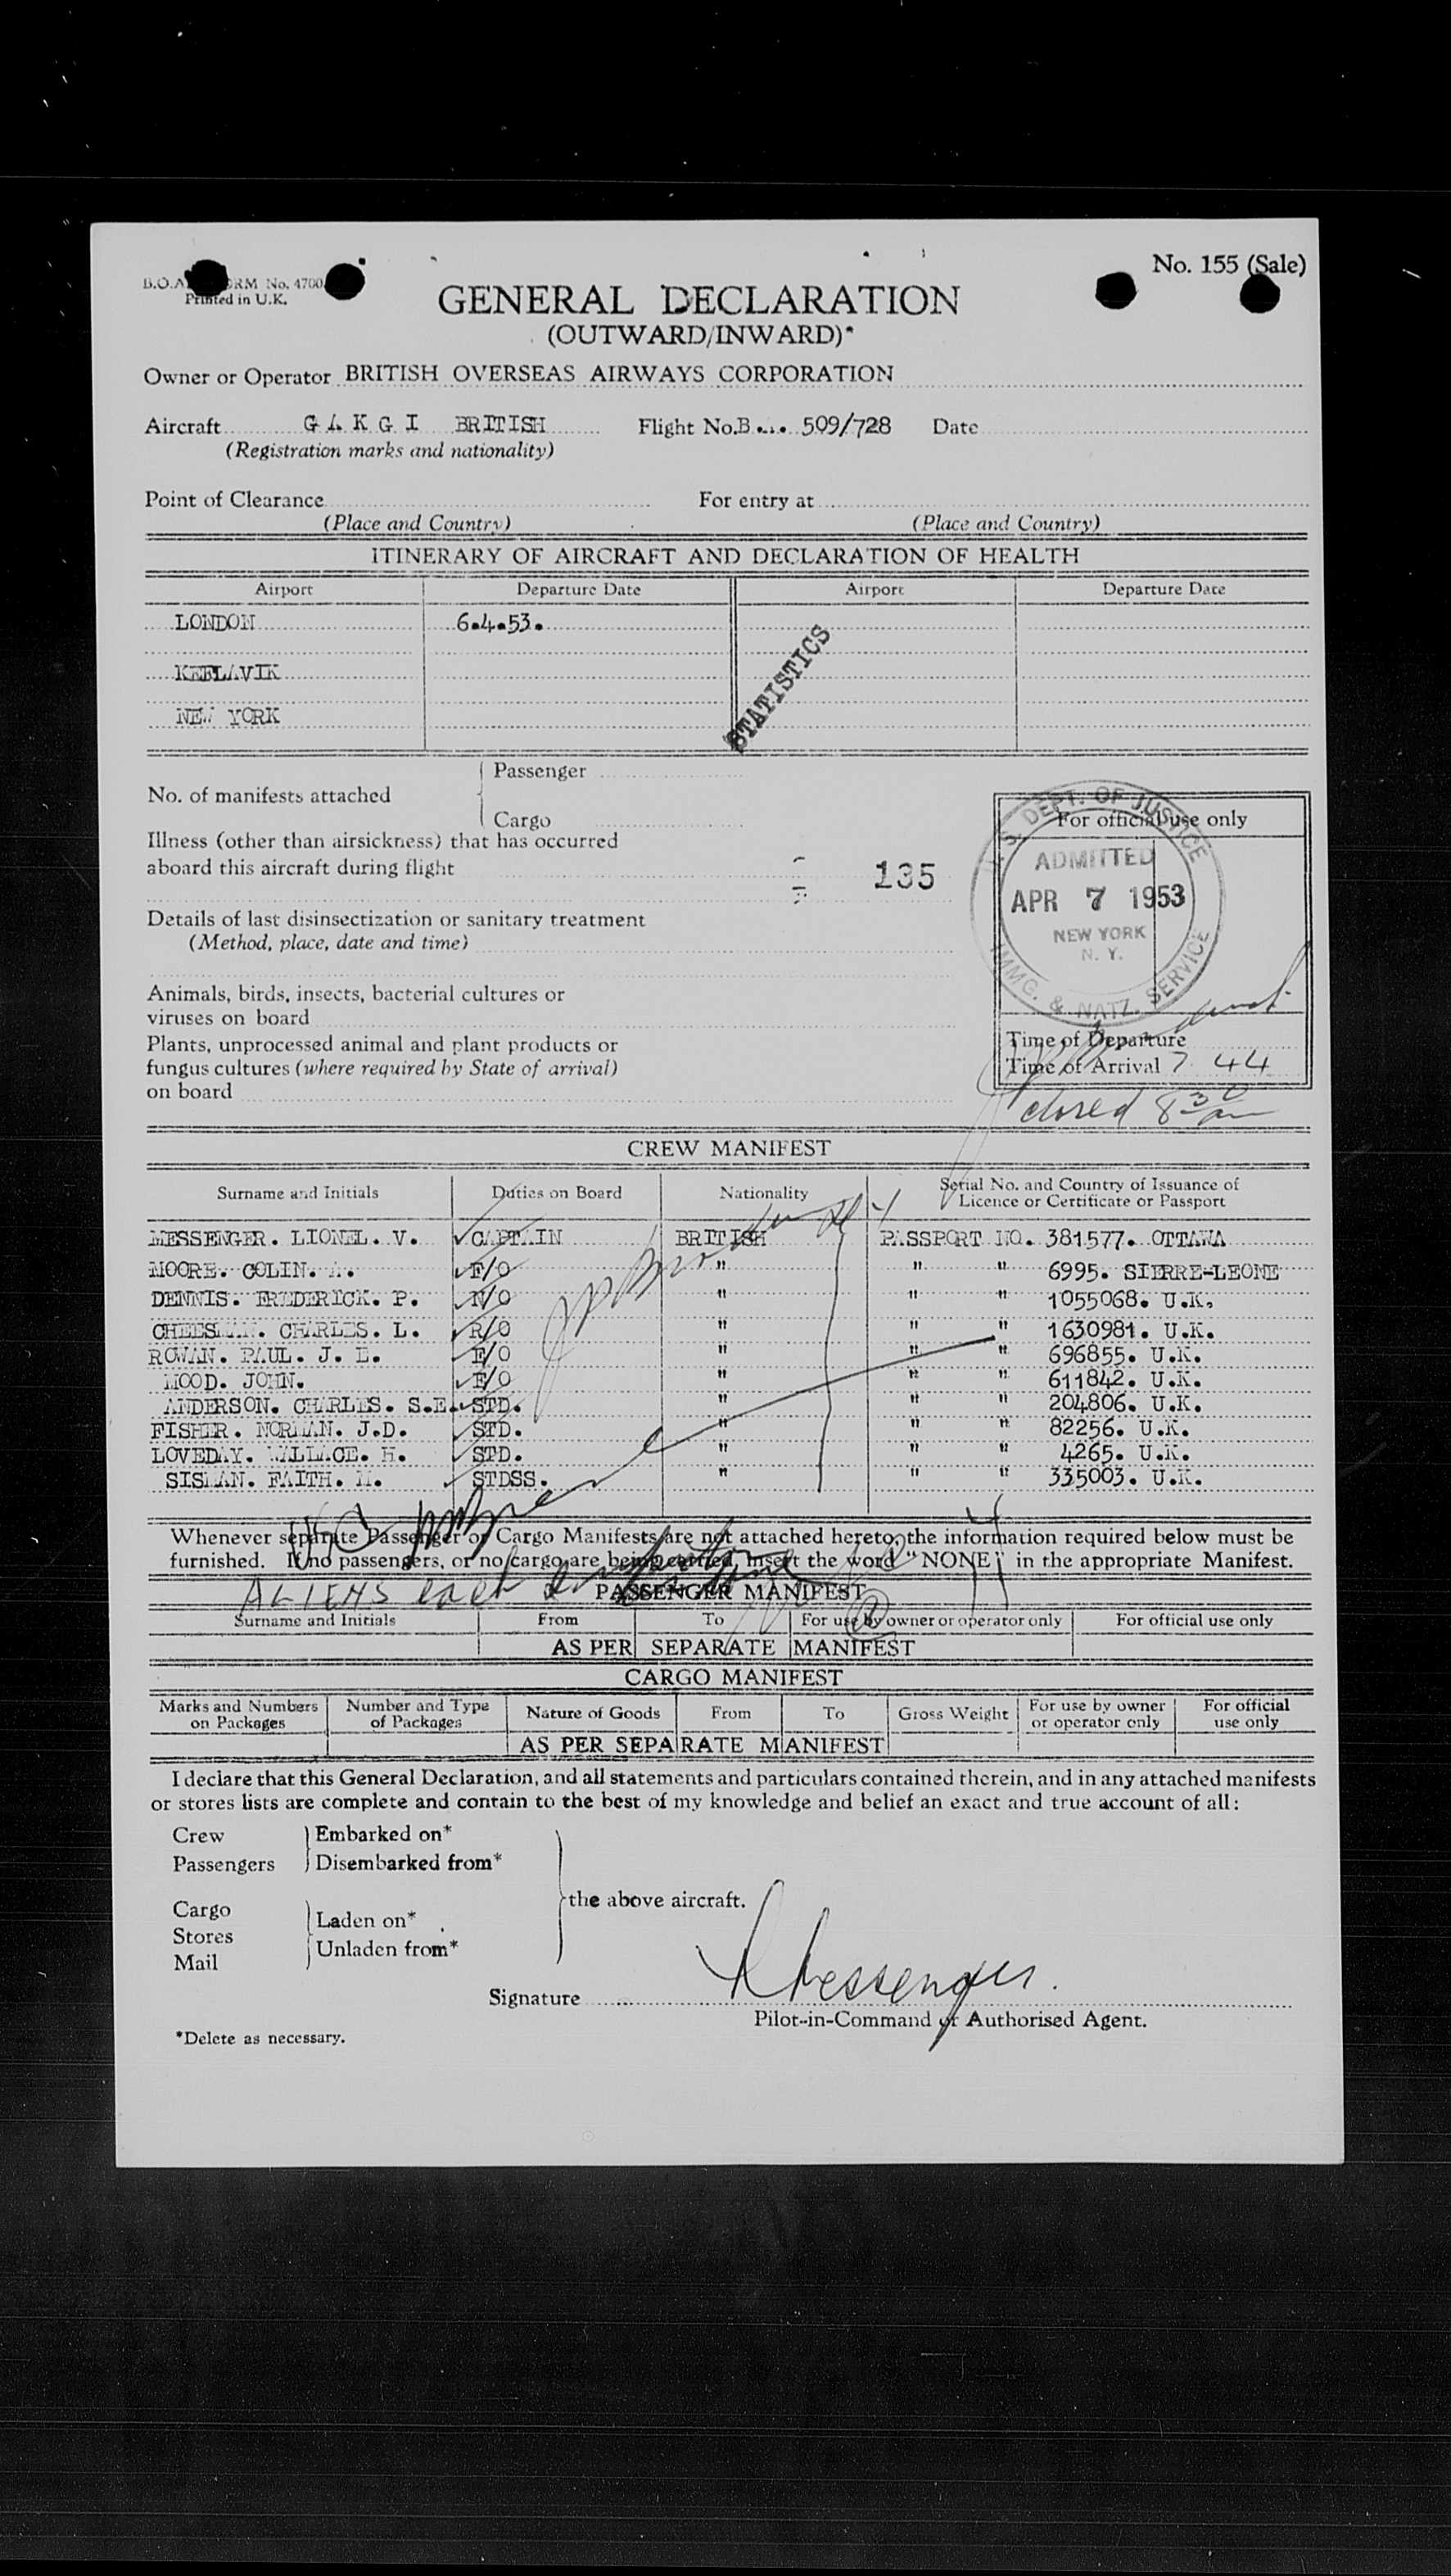 No. 155 (Sale)
B.O.A RM No. 4700
Printed in U.K.
GENERAL DECLARATION
(OUTWARD/INWARD)*
Owner or Operator BRITISH OVERSEAS AIRWAYS CORPORATION
Aircraft G A K G I BRITISH Flight No.B... 509/728 Date
(Registration marks and nationality)
Point of Clearance For entry at
(Place and Country) (Place and Country)
ITINERARY OF AIRCRAFT AND DECLARATION OF HEALTH
Airport Departure Date Airport Departure Date
LONDON 6.4.53.
KEFLAVIK
NEW YORK
STATISTICS
Passenger
No. of manifests attached
Cargo
Illness (other than airsickness) that has occurred
aboard this aircraft during flight
135
Details of last disinsectization or sanitary treatment
(Method, place, date and time)
Animals, birds, insects, bacterial cultures or
viruses on board
Plants, unprocessed animal and plant products or
fungus cultures (where required by State of arrival)
on board
For official use only
U. S. DEPT. OF JUSTICE
ADMITTED
APR 7 1953
NEW YORK
N. Y.
IMMG. & NATZ. SERVICE
Time of Departure
Time of Arrival 7 44
closed 8 30 am
CREW MANIFEST
Surname and Initials Duties on Board Nationality Serial No. and Country of Issuance of
Licence or Certificate or Passport
MESSENGER. LIONEL. V. CAPTAIN BRITISH PASSPORT NO. 381577. OTTAWA
MOORE. COLIN. A. F/O " " " 6995. SIERRE-LEONE
DENNIS. FREDERICK. P. N/O " " " 1055068. U.K.
CHEESMAN. CHARLES. L. R/O " " " 1630981. U.K.
ROWAN. PAUL. J. E/O " " " 696855. U.K.
JOHN. E/O " " " 611842. U.K.
ANDERSON. CHARLES. S.E. STD. " " " 204806. U.K.
FISHER. NORMAN. J.D. STD. " " " 82256. U.K.
LOVEDAY. WALLACE. H. STD. " " " 4265. U.K.
SISMAN. FAITH. M. STDSS. " " " 335003. U.K.
Whenever separate Passenger or Cargo Manifests are not attached hereto, the information required below must be
furnished. If no passengers, or no cargo are being carried, insert the word "NONE" in the appropriate Manifest.
ALIENS each
PASSENGER MANIFEST
Surname and Initials From To For use by owner or operator only For official use only
AS PER SEPARATE MANIFEST
CARGO MANIFEST
Marks and Numbers on Packages Number and Type of Packages Nature of Goods From To Gross Weight For use by owner or operator only For official use only
AS PER SEPARATE MANIFEST
I declare that this General Declaration, and all statements and particulars contained therein, and in any attached manifests
or stores lists are complete and contain to the best of my knowledge and belief an exact and true account of all:
Crew Embarked on*
Passengers Disembarked from*
the above aircraft.
Cargo
Laden on*
Stores
Unladen from*
Mail
Signature Messenger.
Pilot-in-Command or Authorised Agent.
*Delete as necessary.